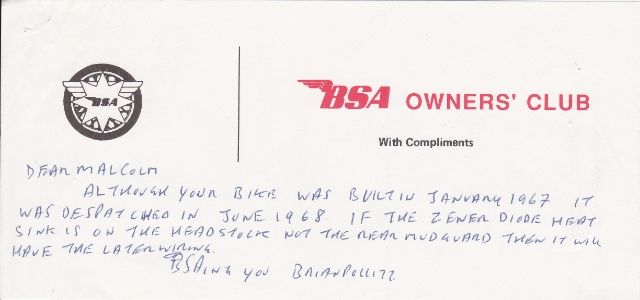 BSA
BSA OWNERS' CLUB
With Compliments
DEAR MALCOLM
ALTHOUGH YOUR BIKE WAS BUILT IN JANUARY 1967 IT
WAS DESPATCHED IN JUNE 1968. IF THE ZENER DIODE HEAT
SINK IS ON THE HEADSTOCK NOT THE REAR MUDGUARD THEN IT WILL
HAVE THE LATER WIRING.
BSAING YOU BRIAN POLLITT